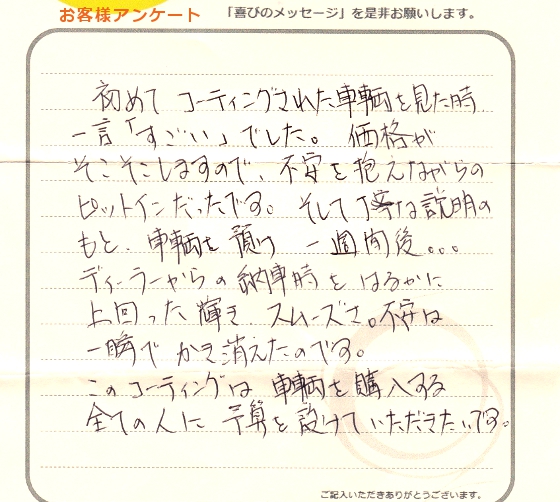 お客様アンケート 「喜びのメッセージ」を是非お願いします。
初めて コーティングされた車輌を見た時
一言「すごい」でした。 価格が
そこそこしますので、不安を抱えながらの
ピットインだったです。 そして丁寧な説明の
もと、車輌を預け 一週間後。。。
ディーラーからの納車時をはるかに
上回った輝き スムーズさ。不安は
一瞬でかき消えたのです。
このコーティングは 車輌を購入する
全ての人に 予算を設けていただきたいです。
ご記入いただきありがとうございます。